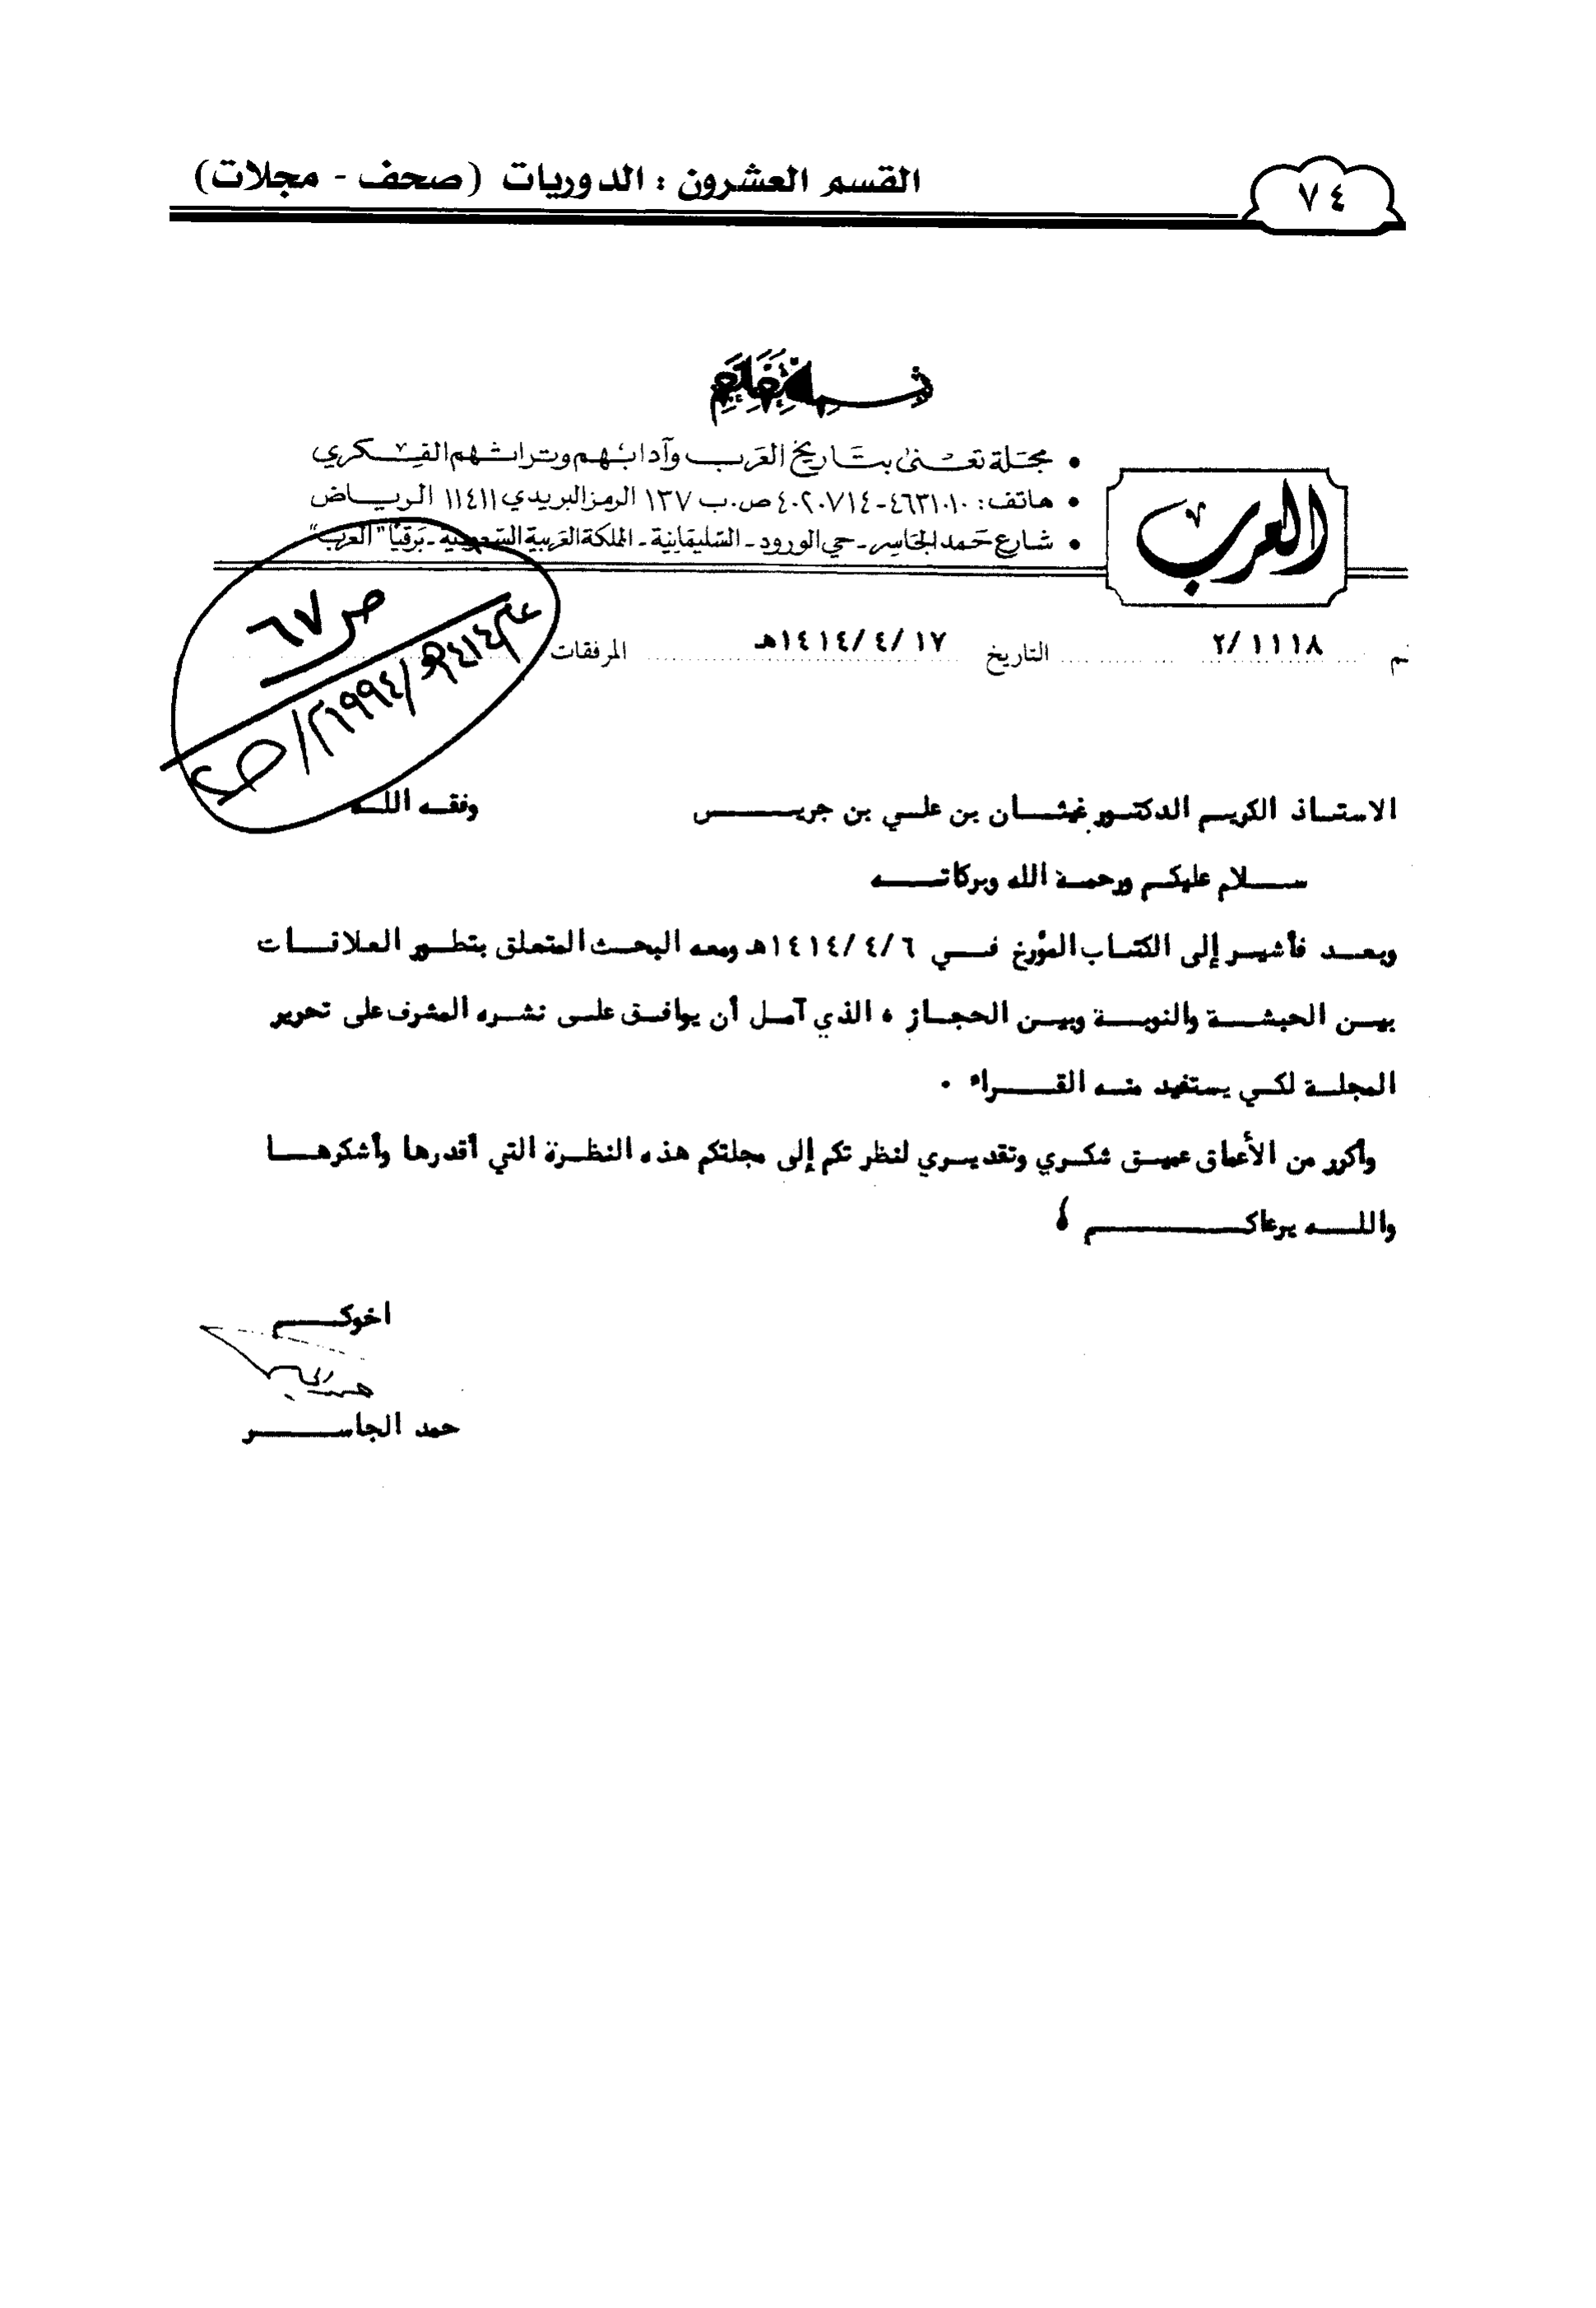 ٧٤
القسم العشرون : الدوريات (صحف - مجلات)
العرب
• مجلة تعنى بتاريخ العرب وآدابهم وتراثهم الفكري
• هاتف: ٤٦٣١٠١٠-٤٠٢٠٧١٤ ص.ب ١٣٧ الرمز البريدي ١١٤١١ الرياض
• شارع حمد الجاسر - حي الورود - السليمانية - المملكة العربية السعودية - برقيًا "العرب"
٢/١١١٨ التاريخ ١٤١٤/٤/١٧هـ المرفقات
ص ٦٧
الاستاذ الكريم الدكتور غيثان بن علي بن جريس وفقه الله
سلام عليكم ورحمة الله وبركاته
وبعد فأشير إلى الكتاب المؤرخ في ١٤١٤/٤/٦هـ ومعه البحث المتعلق بتطور العلاقات
بين الحبشة والنوبة وبين الحجاز ، الذي آمل أن يوافق على نشره المشرف على تحرير
المجلة لكي يستفيد منه القراء .
وأكرر من الأعماق عميق شكري وتقديري لنظرتكم إلى مجلتكم هذه النظرة التي أقدرها وأشكرها
والله يرعاكم ،
اخوكم
حمد الجاسر